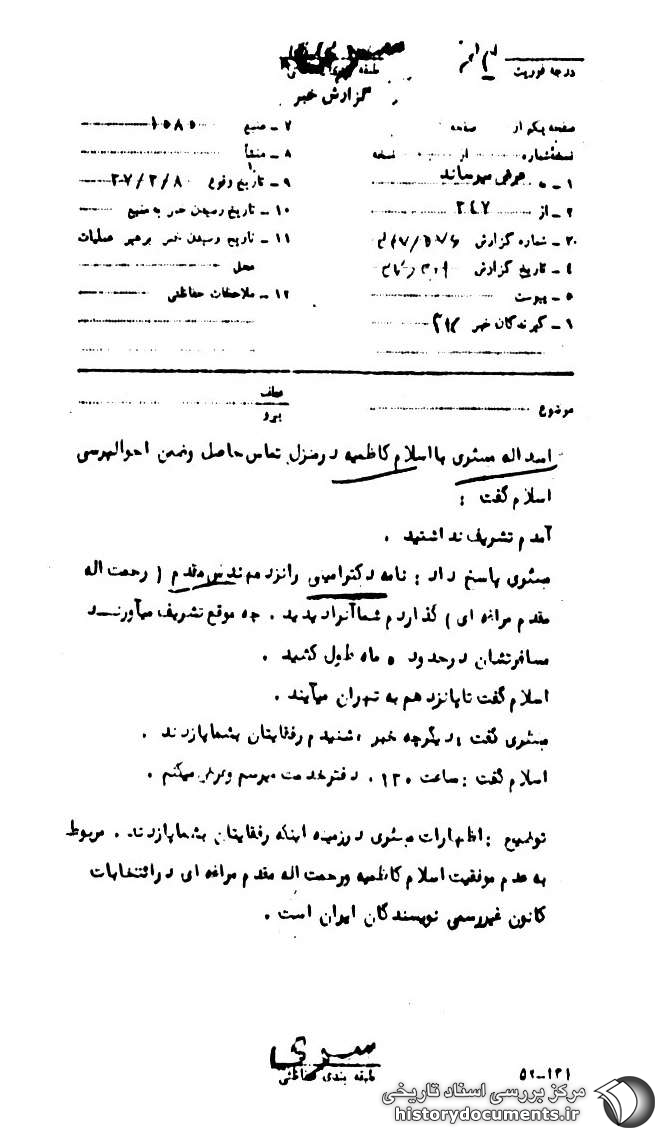 درجه فوریت
سری
طبقه بندی حفاظتی
گزارش خبر
صفحه یکم از صفحه
۷ ـ منبع ۱۰۵۸۰
نسخه شماره از نسخه
۸ ـ منشأ
۱ ـ به عرض میرساند
۹ ـ تاریخ وقوع
۲ ـ از
۱۰ ـ تاریخ رسیدن خبر به منبع
۳ ـ شماره گزارش
۱۱ ـ تاریخ رسیدن خبر برهبر عملیات
۴ ـ تاریخ گزارش
محل
۵ ـ پیوست
۱۲ ـ ملاحظات حفاظتی
۶ ـ گیرندگان خبر
موضوع
عطف
پیرو
اسداله مبشری با اسلام کاظمیه در منزل تماس حاصل و ضمن احوالپرسی
اسلام گفت :
آمدم تشریف نداشتید .
مبشری پاسخ داد : نامه دکتر امینی را نزد مهندس مقدم ( رحمت اله
مقدم مراغه ای ) گذاردم شما آنرا دیدید . چه موقع تشریف میآورنـد
مسافرتشان در حدود ۵ ماه طول کشید .
اسلام گفت تا پانزدهم به تهران میآیند .
مبشری گفت : دیگر چه خبر ، شنیدم رفقایتان بشما پا زدند .
اسلام گفت : ساعت ۱۲۰ . دفتر خدمت میرسم و عرض میکنم .
توضیح : اظهارات مبشری در زمینه اینکه رفقایتان بشما پا زدند . مربوط
به عدم موفقیت اسلام کاظمیه و رحمت اله مقدم مراغه ای در انتخابات
کانون غیررسمی نویسندگان ایران است .
سری
طبقه بندی حفاظتی
۵۲-۱۳۱
مرکز بررسی اسناد تاریخی
historydocuments.ir